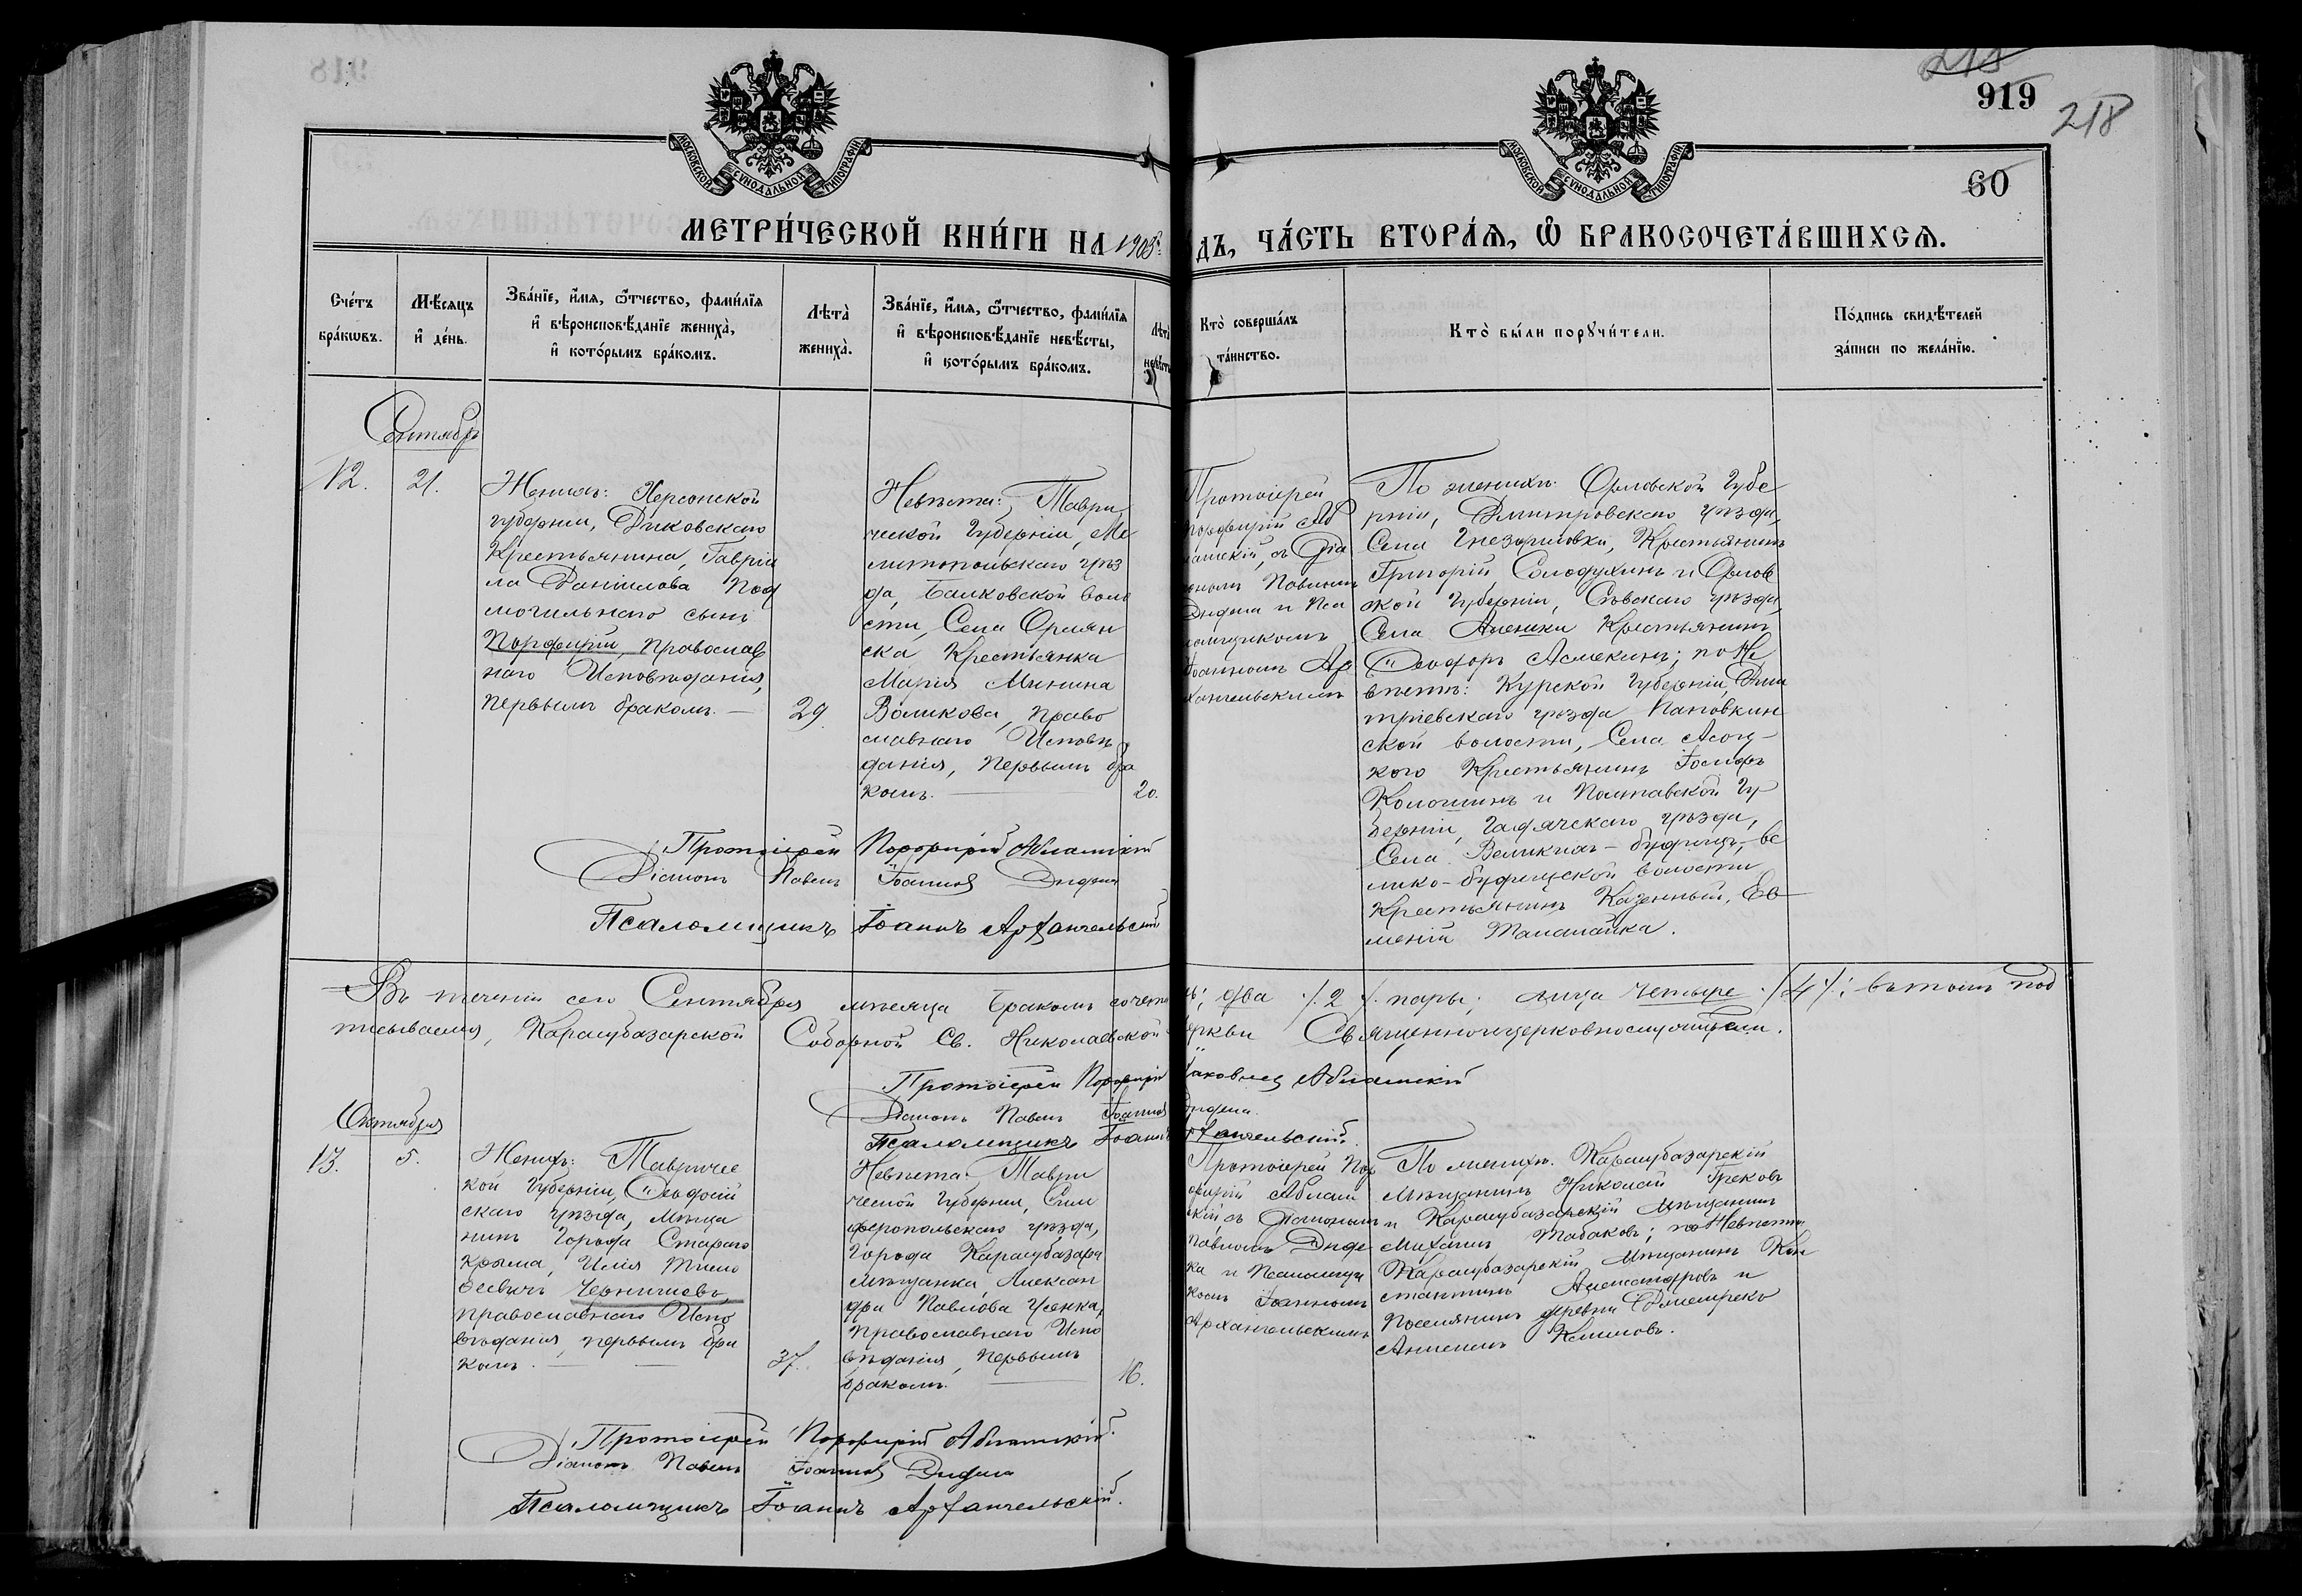 918
919
218
60
МОСКОВСКОЙ СУНОДАЛЬНОЙ ТИПОГРАФІИ
МОСКОВСКОЙ СУНОДАЛЬНОЙ ТИПОГРАФІИ
МЕТРИ́ЧЕСКОЙ КНИ́ГИ НА 1905 г.
ДЪ, ЧА́СТЬ ВТОРА́Ѧ, Ѽ БРАКОСОЧЕТА́ВШИХСѦ.
Сче́тъ
бра́кωвъ.
Мѣ́сяцъ
и҆ де́нь.
Зва́нїе, и҆́мя, ѻ҆́тчество, фами́лїя
и҆ вѣроисповѣ́данїе жениха̀,
и҆ кото́рымъ бра́комъ.
Лѣта̀
жениха̀.
Зва́нїе, и҆́мя, ѻ҆́тчество, фами́лїя
и҆ вѣроисповѣ́данїе невѣ́сты,
и҆ кото́рымъ бра́комъ.
Лѣта̀
невѣ́сты
Кто̀ соверша́лъ
та́инство.
Кто̀ бы́ли порꙋчи́тели.
По́дпись свидѣ́телей
за́писи по жела́нїю.
Сентябрь
12.
21.
Женихъ: Херсонской
губерніи,
Крестьянина, Гавріи
ла Даніилова Под
могильнаго сынъ
Порфирій, православ
наго Исповѣданія,
первымъ бракомъ. —
29.
Невѣста: Таври
ческой Губерніи, Ме
литопольскаго уѣз
да, Балковской воло
сти, Села Орлян
ска Крестьянка
Марія Минина
Воликова, право
славнаго Исповѣ
данія, первымъ бра
комъ.
20.
Протоіерей
Порфирій Аб
лашскій, съ Діа
кономъ Павломъ
и Пса
ломщикомъ
Іоанномъ Ар
хангельскимъ
По женихѣ: Орловской Губе
рніи, Дмитровскаго уѣзда,
Села Крестьянинъ
Григорій Солодухинъ и Орлов
ской Губерніи, Сѣвскаго уѣзда,
Села Алешки Крестьянинъ
Ѳеодоръ по Не
вѣстѣ: Курской Губерніи, Дми
тріевскаго уѣзда
ской волости, Села
кого Крестьянинъ Іосифъ
и Полтавской Гу
берніи, Гадячскаго уѣзда,
Села Великихъ-Будищъ, ве
лико-будищской волости
Крестьянинъ Казенный, Ев
меній Таманайка.
Протоіерей Порфирій Аблашскій
Діаконъ Павелъ Іоанновъ
Псаломщикъ Іоаннъ Архангельскій
Въ теченіи сего Сентября мѣсяца бракомъ сочета
ь; два ./. 2 ./. пары; лица четыре ./. 4 ./.; въ томъ под
писываемся, Карасубазарской Соборной Св. Николаевской
еркви Священноицерковнослужители.
Протоіерей Порфирій Іаковлев Аблашскій
Діаконъ Павелъ Іоаннов
Псаломщикъ Іоаннъ Архангельскій.
Октября
13.
5.
Женихъ: Тавричес
кой Губерніи, Ѳеодосій
скаго уѣзда, Мѣща
нинъ Города Стараго
Крыма, Илія Тимо
ѳеевичъ Чернышовъ,
православнаго Испо
вѣданія, первымъ бра
комъ.
37.
Невѣста: Таври
ческой Губерніи, Сим
феропольскаго уѣзда,
Города Карасубазара
Мѣщанка, Алексан
дра Павлова Усенка,
православнаго Испо
вѣданія, первымъ
бракомъ.
16.
Протоіерей Пор
фирій Аблаш
скій, съ Діакономъ
Павломъ
и Псаломщи
комъ Іоанномъ
Архангельскимъ
По женихѣ. Карасубазарскій
Мѣщанинъ Николай Грековъ
и Карасубазарскій Мѣщанинъ
Михаилъ Табаковъ; по Невѣстѣ
Карасубазарскій Мѣщанинъ Кон
стантинъ Александровъ и
Поселянинъ деревни
Протоіерей Порфирій Аблашскій.
Діаконъ Павелъ Іоанновъ
Псаломщикъ Іоаннъ Архангельскій.